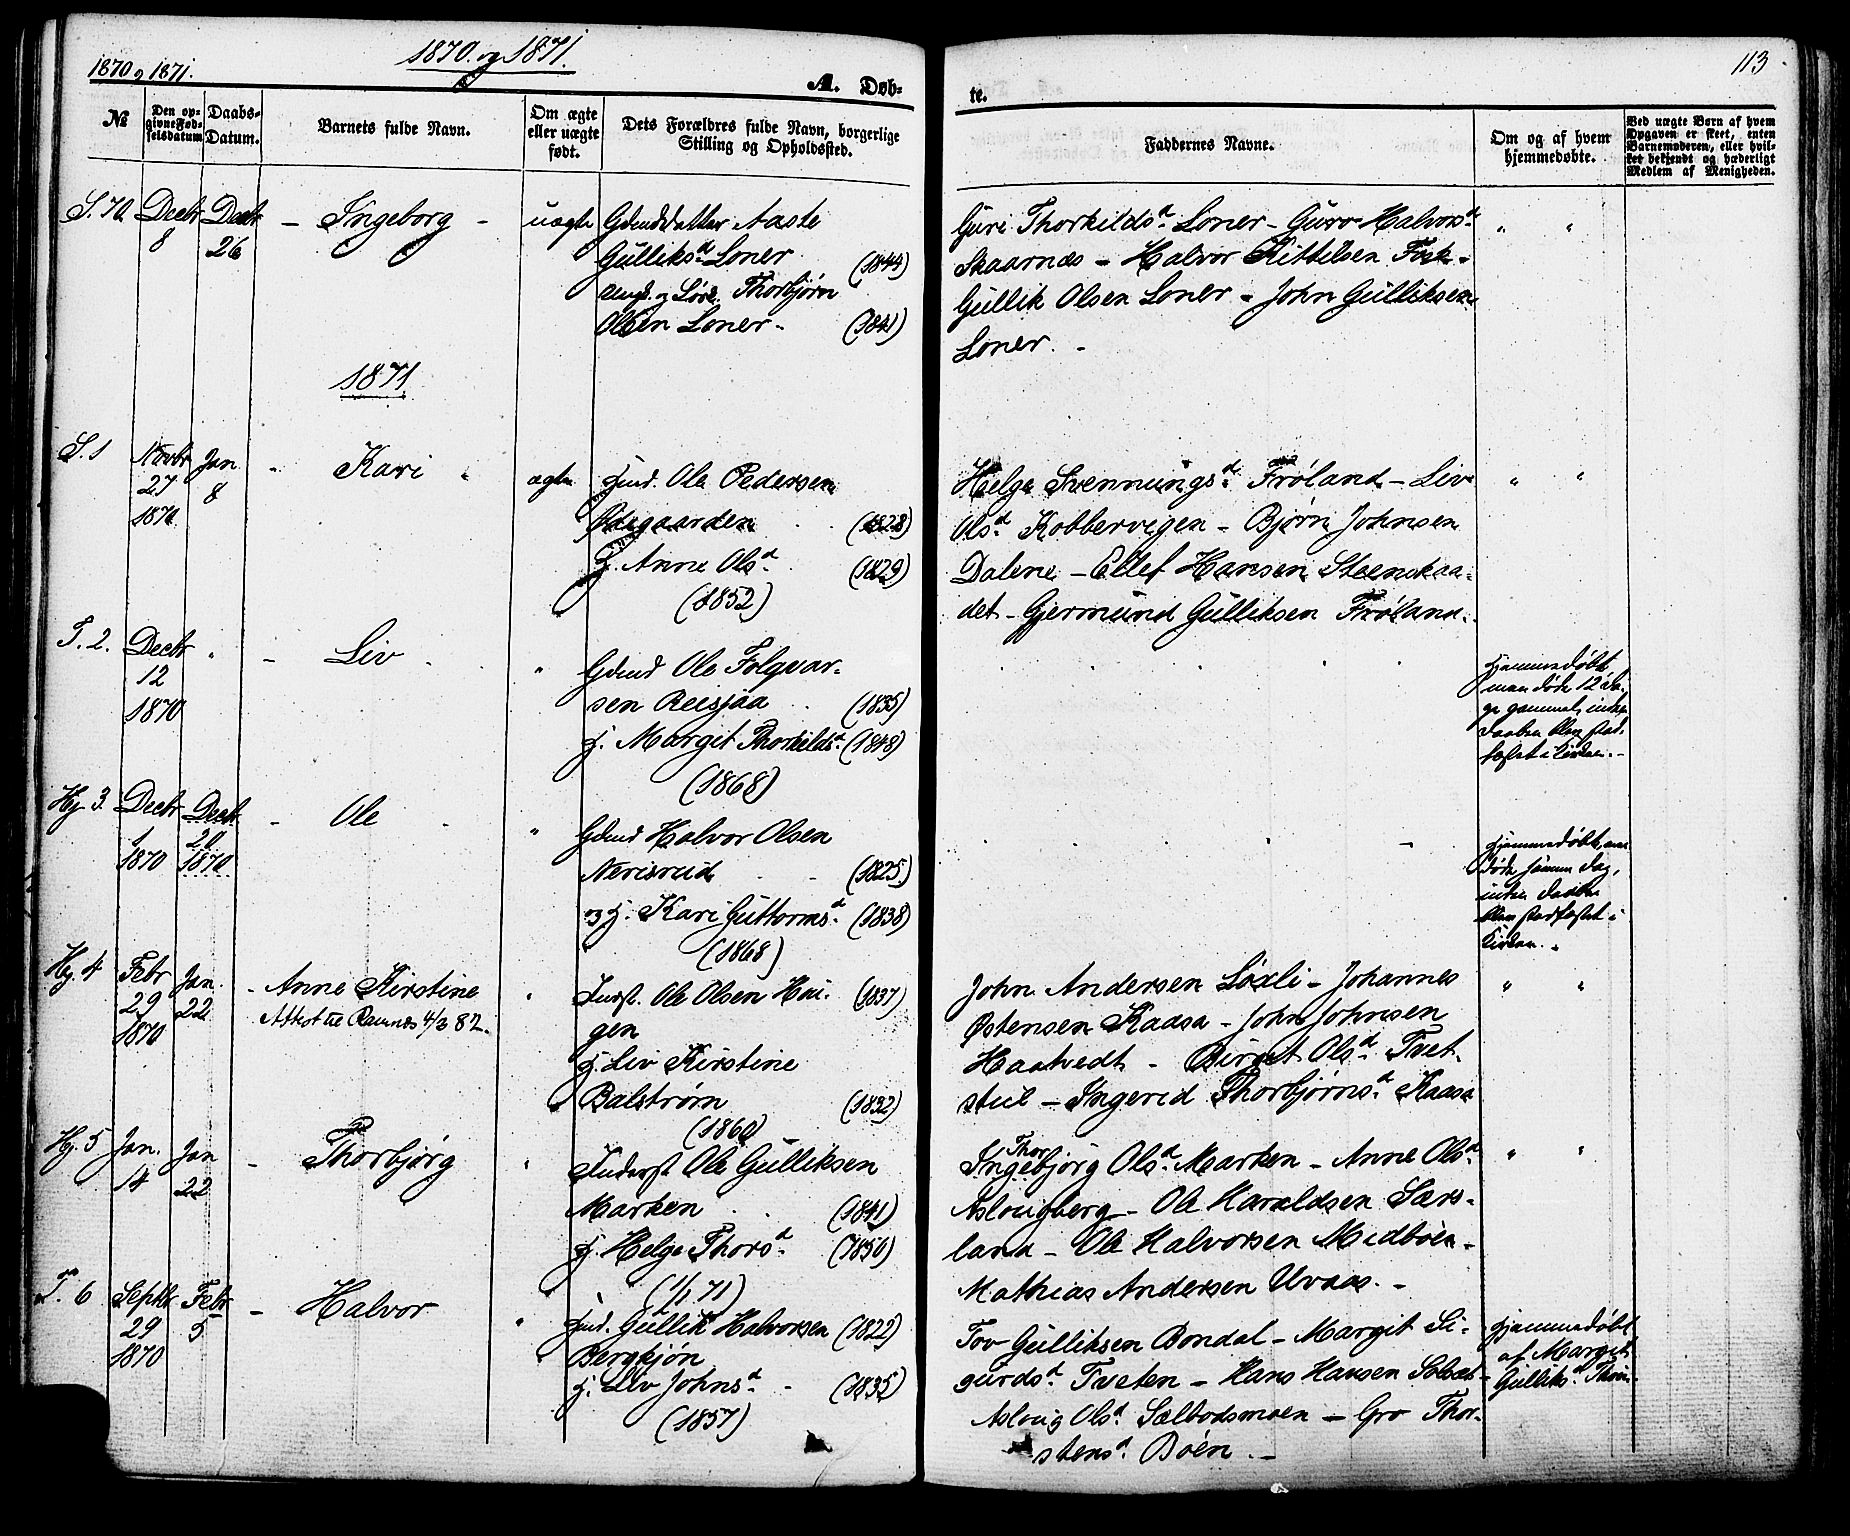 1870 og 1871.
1870. og 1871.
113
A. Døb-
te.
№
Den op-
givne Fød-
selsdatum
Daabs-
Datum.
Barnets fulde Navn.
Om ægte
eller uægte
født.
Dets Forældres fulde Navn, borgerlige
Stilling og Opholdssted.
Faddernes Navne.
Om og af hvem
hjemmedøbte.
Ved uægte Børn af hvem
Opgaven er skeet, enten
Barnemoderen, eller hvil-
ket bekjendt og hæderligt
Medlem af Menigheden.
S. 70 Decbr
8
Decbr
26
- Ingeborg -
uægte
Gdmdsdatter Aaste
Gulliksd. Loner (1844)
Ungk. og Thorbjørn
Olsen Loner - (1841)
Guri Thorkildsd. Loner - Guro Halvorsd.
Skaarnæs - Halvor Kittilsen
Gullik Olsen Loner - John Gulliksen
Loner. -
" "
1871
S. 1 Novbr
27
1870
Jan
8
- Kari -
ægte
Hmd. Ole Pedersen
Ødegaarden (1828)
H. Anne Olsd. (1829)
(1852)
Helge Svennungsd. Frøland - Liv
Olsd. Kobbervigen - Bjørn Johnsen
Dalene - Ellef Hansen Steenskaa-
det - Gjermund Gulliksen Frøland.
" "
T. 2. Decbr
12
1870
"
- Liv -
"
Gdmd Ole Folqvar-
sen Reisjaa (1835)
H. Margit Thorkildsd. (1848)
(1868)
Hjemmedøbt,
men døde 12 Da-
ge gammel, inden
Daaben blev stad-
fæstet i Kirken. -
Hj. 3. Decbr
1
1870
Decbr
20
1870
- Ole -
"
Gdmd Halvor Olsen
Nerisrud (1825)
og H. Kari Guttormsd. (1838)
(1868)
Hjemmedøbt, men
døde samme Dag,
inden Daaben
blev stadfæstet i
Kirken. -
Hj. 4 Febr
29
1870
Jan.
22
- Anne Kirstine
Attest til Ramnæs 4/3 82.
"
Inderst. Ole Olsen Hau- (1837)
gen
H. Liv Kirstine
Balstrøm (1832)
(1860)
John Andersen Løxli - Johannes
Østensen Kaasa - John Johnsen
Haatvedt - Birget Olsd. Tvet-
stul - Ingerid Thorbjørnsd. Kaasa
" "
Hj. 5 Jan.
14
Jan
22
- Thorbjørg
"
Inderst Ole Gulliksen
Marken (1841)
H. Helge Thorsd. (1850)
(1/1 71)
Thor
Ingebjørg Olsd. Marken - Anne Olsd.
Aslougberg - Ole Haraldsen Særs-
land - Ole Halvorsen Midbøen -
Mathias Andersen Uvaas. -
" "
T. 6 Septbr
29
1870
Febr
5
- Halvor
"
Hmd. Gullik Halvorsen (1822)
Bergkjøn
H. Liv Johnsd. - (1835)
(1857)
Tov Gulliksen Bondal - Margit Si-
gurdsd. Tveten - Hans Hansen
Asloug Olsd. Sælbodsmoen - Gro Thor-
stensd. Bøen. -
Hjemmedøbt
af Margit
Gulliksd.